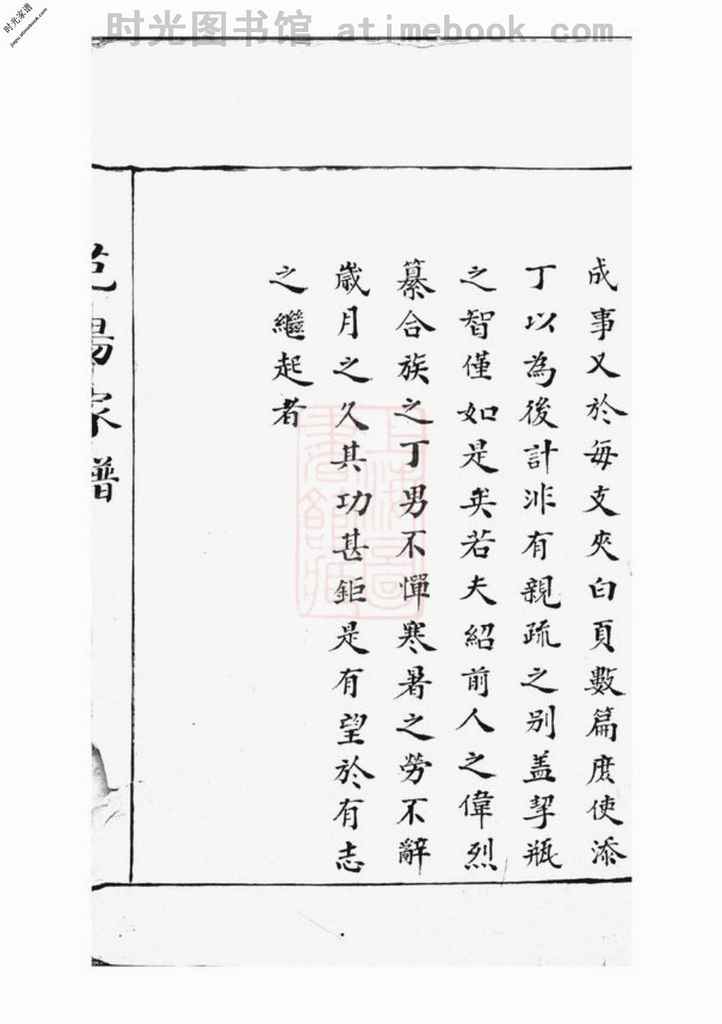 时光图书馆 atimebook.com
时光家谱
jiapu.atimebook.com
成事又於每支夾白頁數篇庶使添
丁以為後計非有親疏之别盖挈瓶
之智僅如是矣若夫紹前人之偉烈
纂合族之丁男不憚寒暑之勞不辭
歲月之久其功甚鉅是有望於有志
之繼起者
家譜
上海圖書館藏